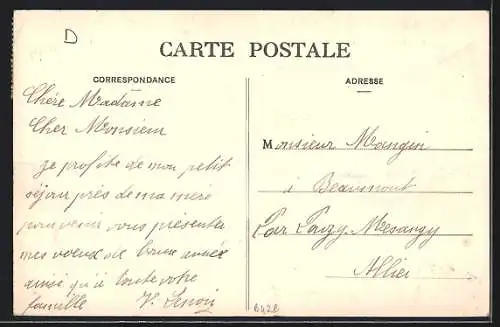 D
CARTE POSTALE
CORRESPONDANCE
ADRESSE
Chère Madame
Cher Monsieur
je profite de mon petit
séjour près de ma mère
pour venir vous présenter
mes voeux de bonne année
ainsi qu'à toute votre
famille V. Lenoir
Monsieur Mangin
à Beaumont
Par Pouzy-Mesangy
Allier